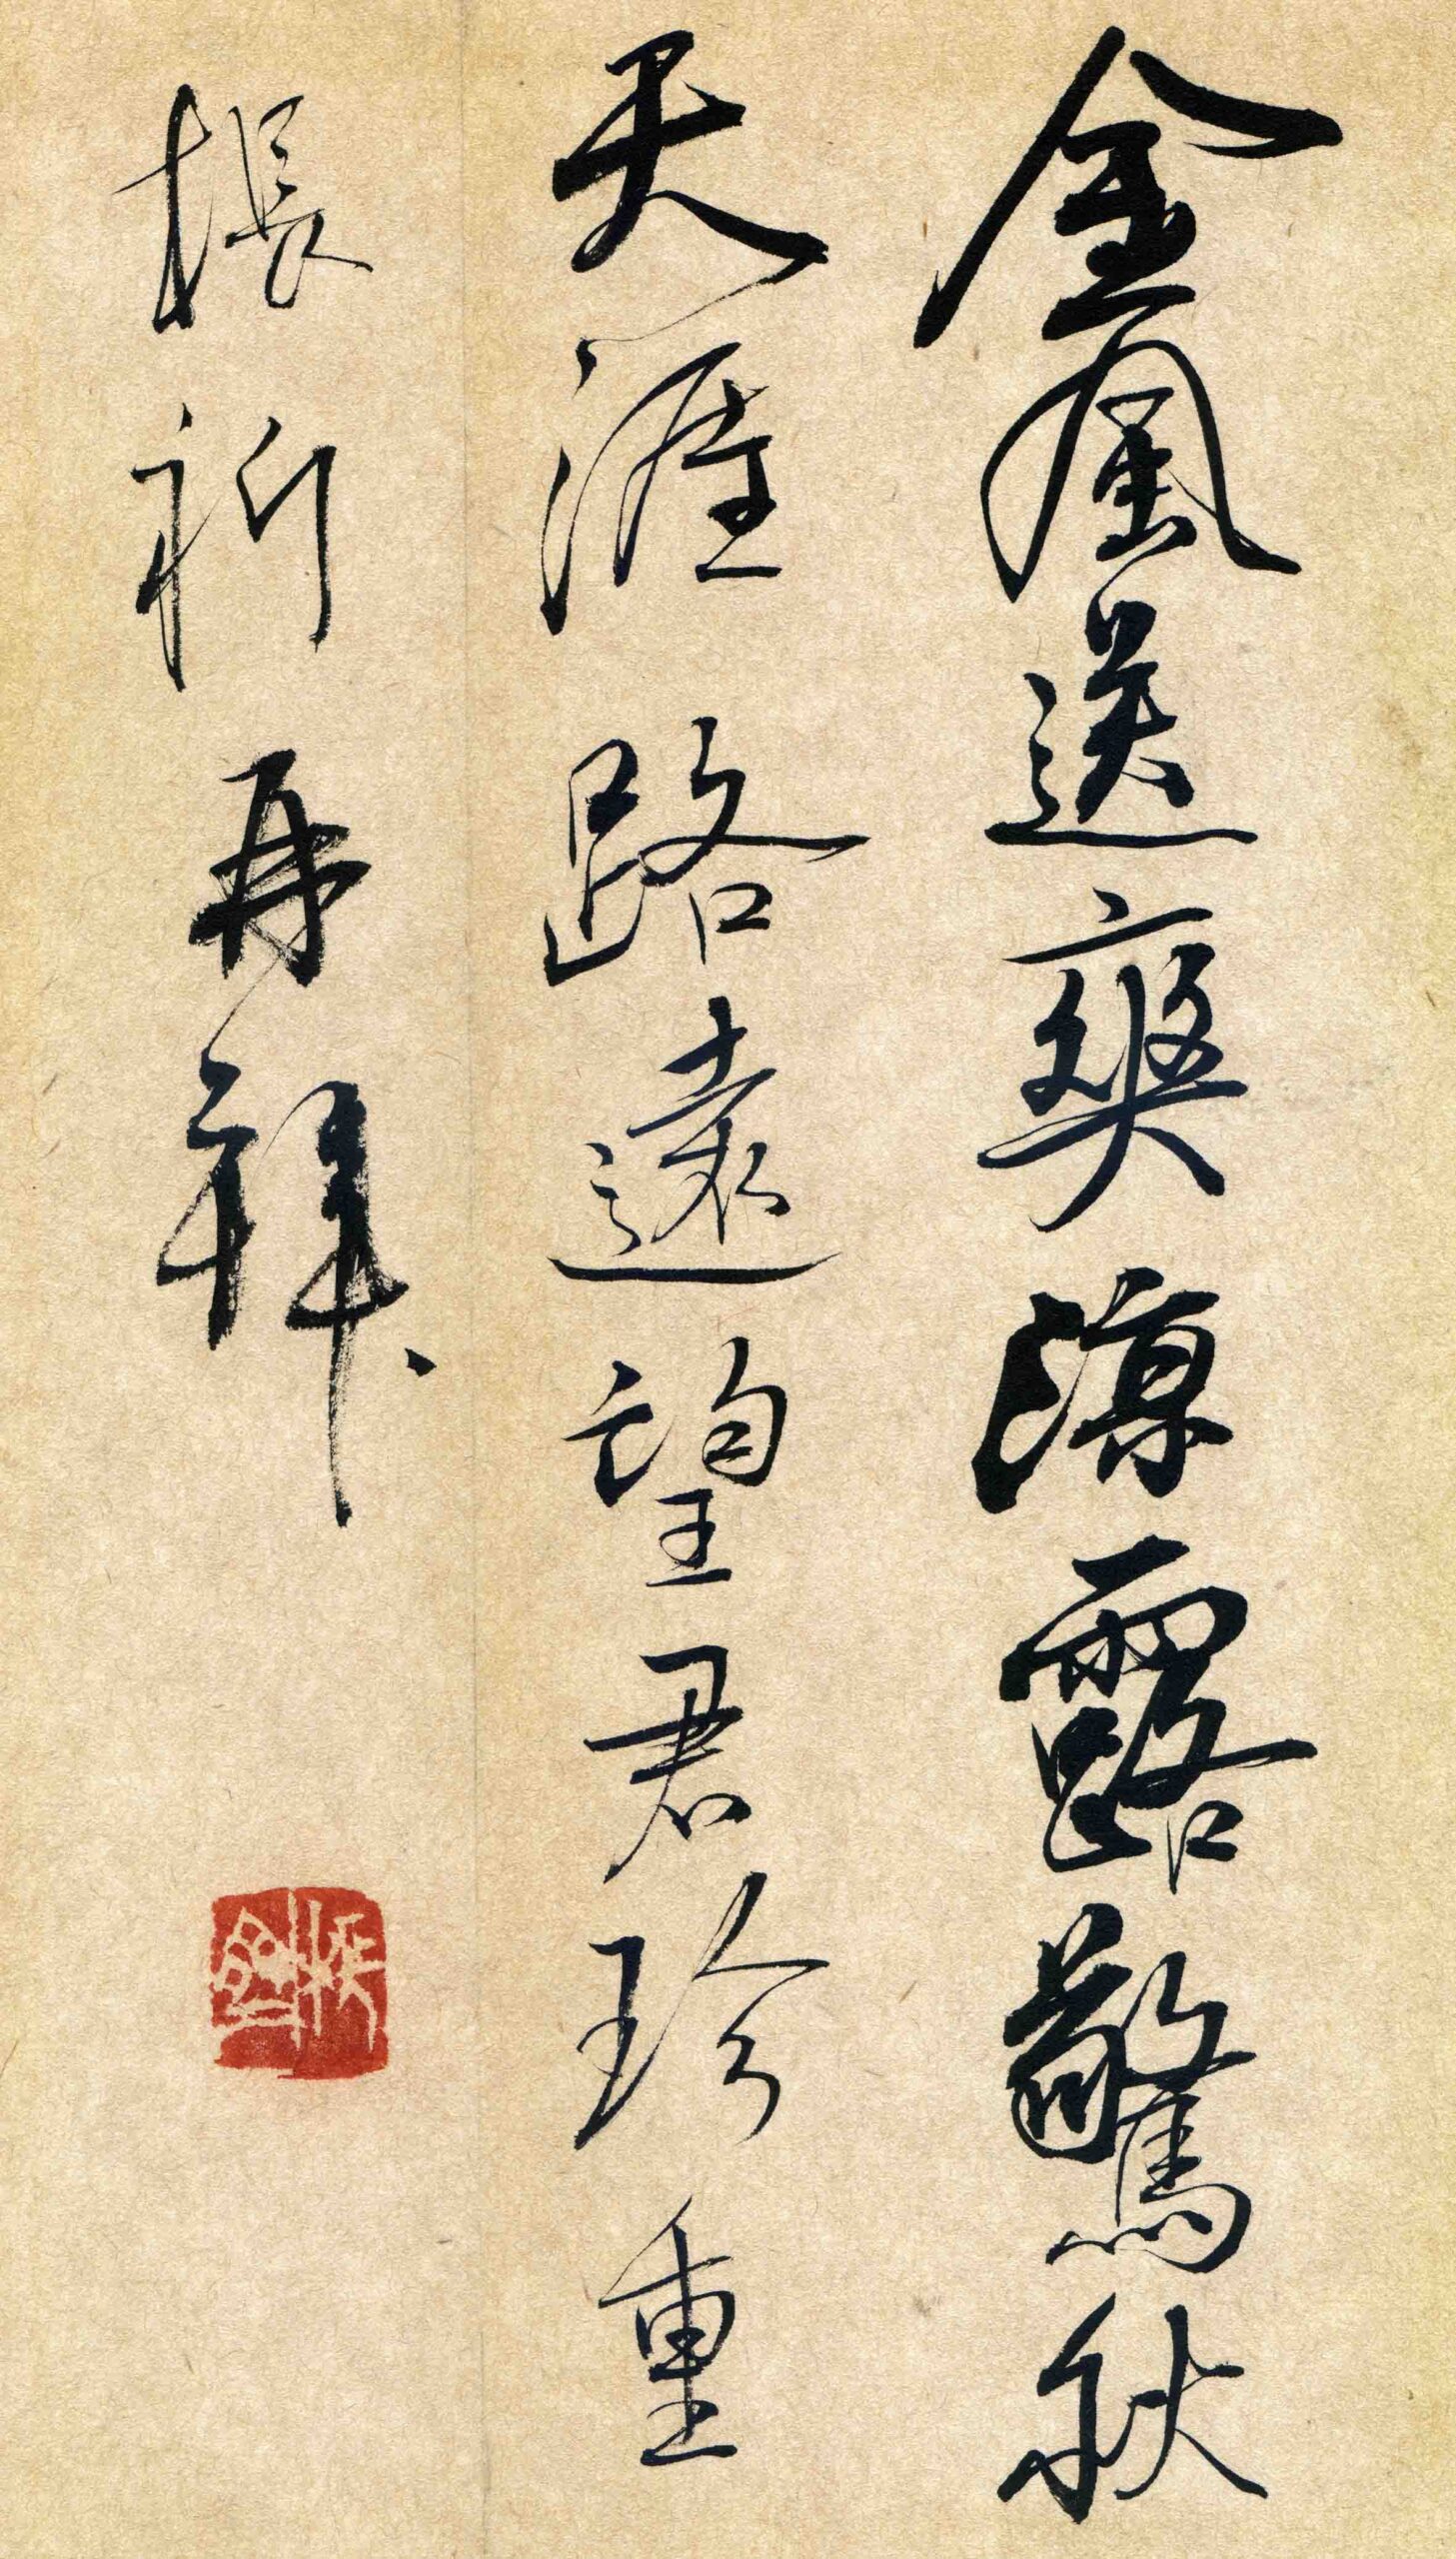 金風送爽涼露驚秋
天涯路遠望君珍重
振祈再拜